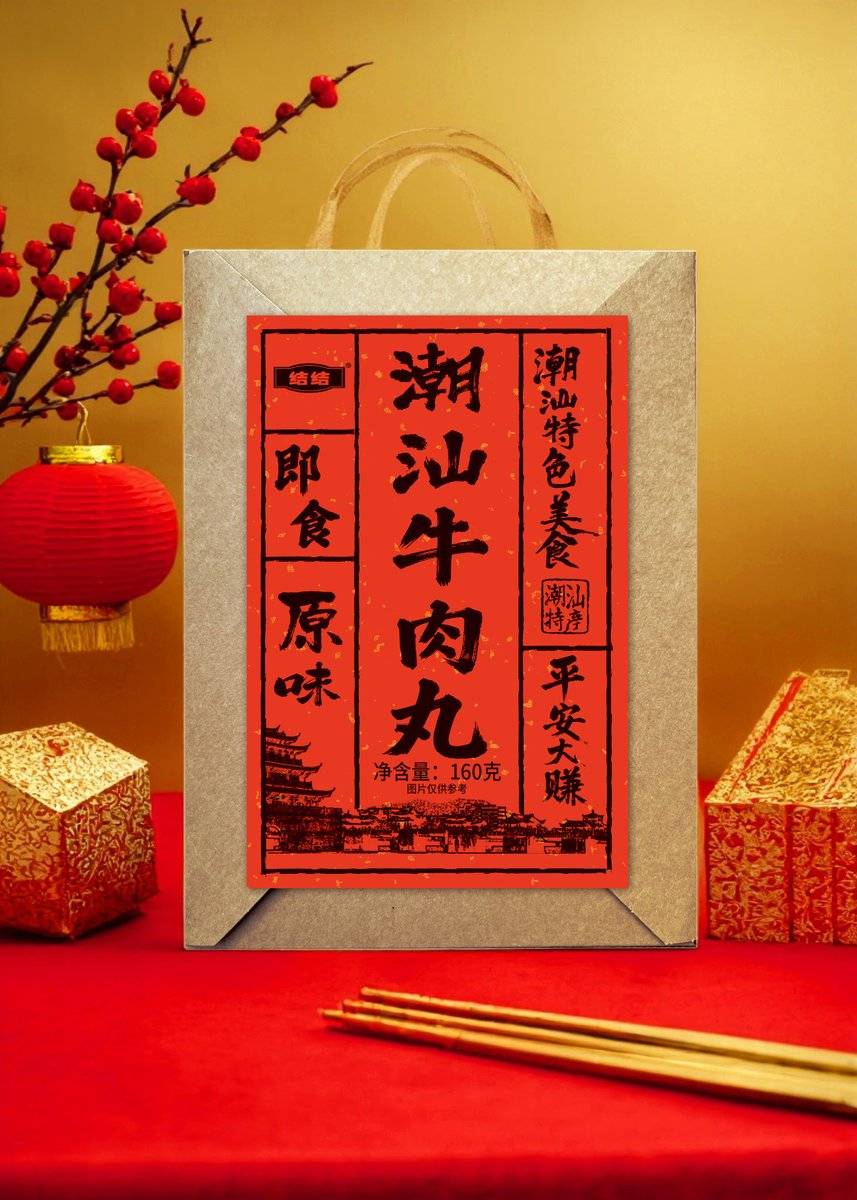 结结®
即食
原味
潮汕牛肉丸
净含量：160克
图片仅供参考
潮汕特色美食
潮汕
特产
平安大赚